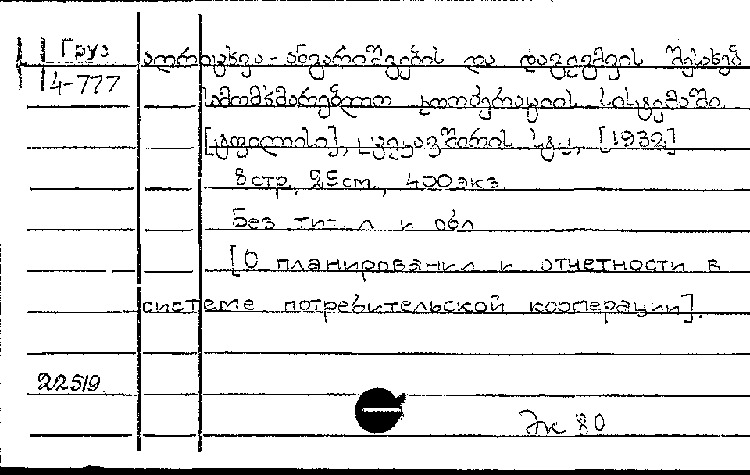 Груз
4-777
აღრიცხვა-ანგარიშგების და დაგეგმვის შესახებ
სამომხმარებლო კოოპერაციის სისტემაში
[ტფილისი], ცეკავშირის სტ., [1932]
8 стр. 25 cm., 400 экз.
Без тит. л и обл
[О планировании и отчетности в
системе потребительской кооперации].
22519
Эк 80